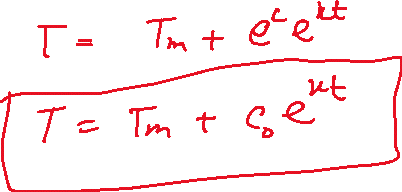 T = Tm + e^c e^kt
T = Tm + C₀ e^kt